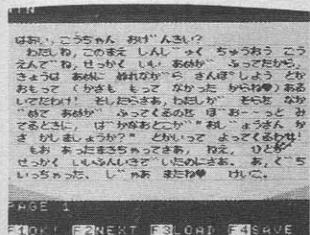 はあい、こうちゃん おげ゛んきい?
わたしね、このまえ しんし゛ゅく ちゅうおう こう
えんて゛ね、せっかく いい あめか゛ ふってたから、
きょうは あめに ぬれなか゛ら さんほ゜しよう とか
おもって (かさも もって なかった からね♥) ある
いてたわけ! そしたらさあ、わたしか゛ そらを なか
゛めて あめか゛ ふってくるのを ほ゛おーっと み
てるときに、は゛かなおとこか゛"おし゛ょうさん か
さ かしましょうか?" とかいって よってくるわけ!
もお あったまきちゃってさあ、ねえ、ひと か゛
せっかく いいふんいきて゛いたのにさあ。あ,く゛ち
いっちゃった、 し゛ゃあ またね♥ けいこ。
PAGE 1
F1OK! F2NEXT F3LOAD F4SAVE